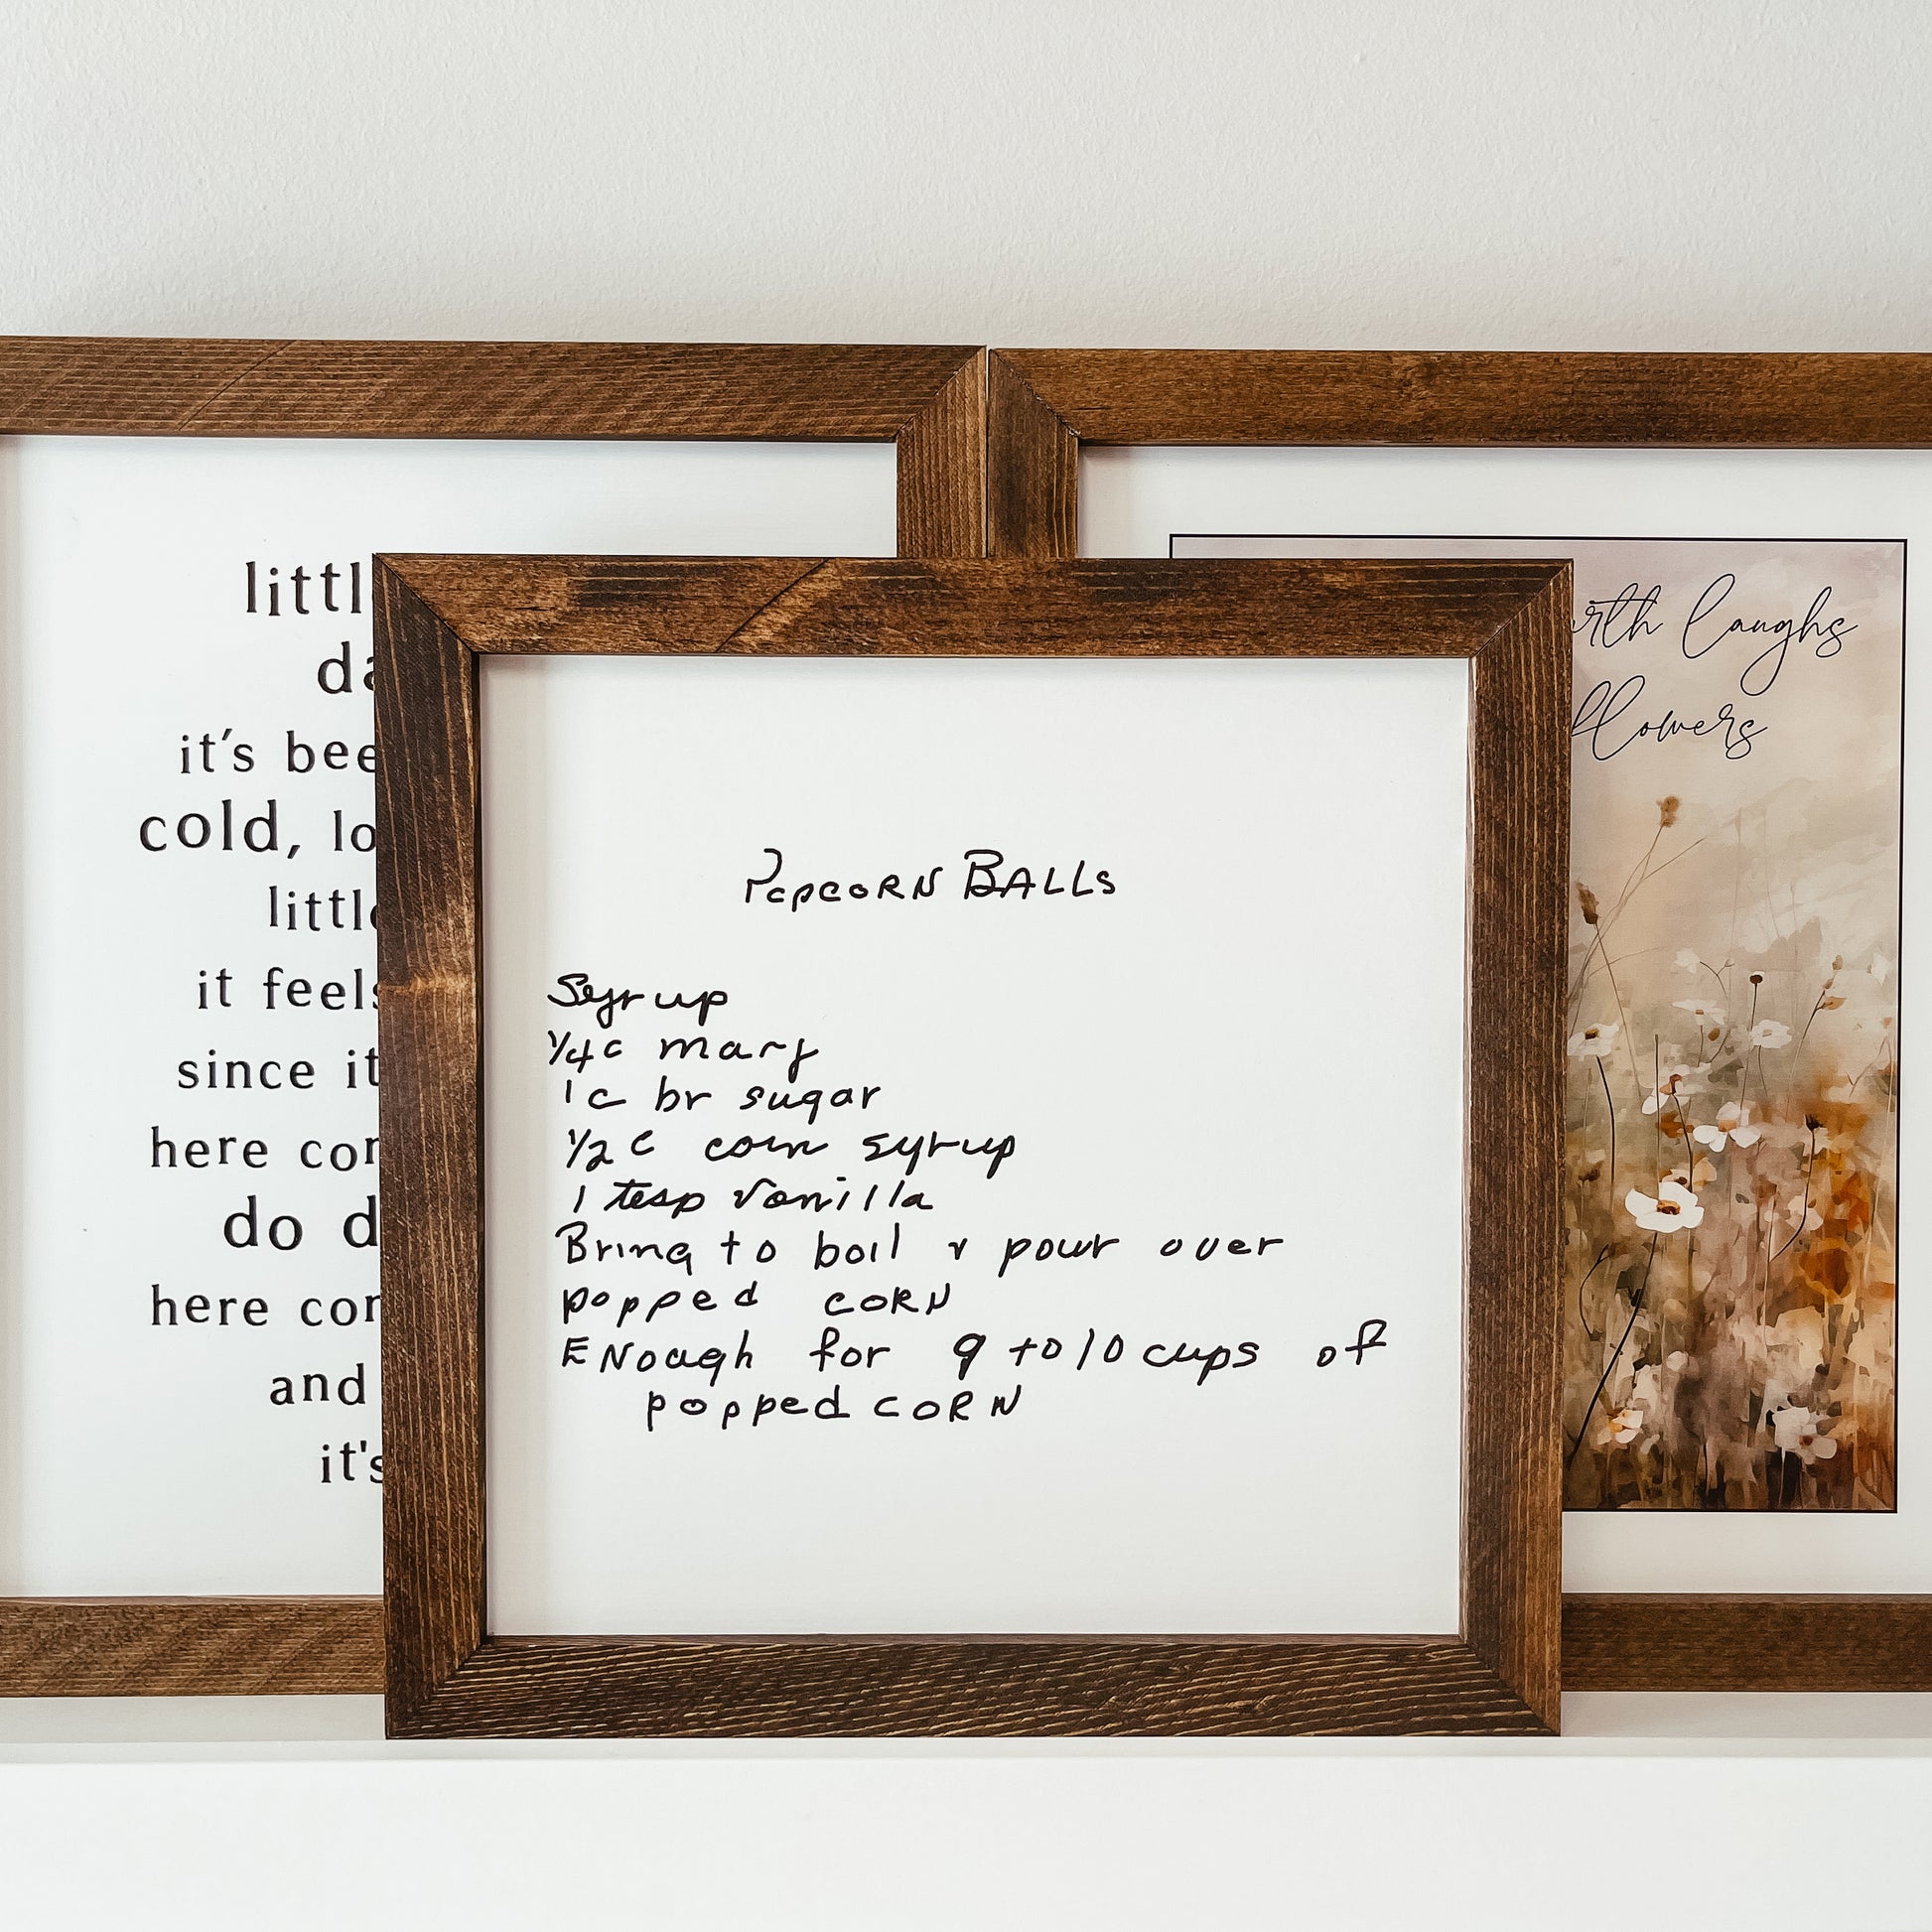 littl
da
it's bee
cold, lo
little
it feels
since it
here cor
do d
here cor
and
it's
Popcorn Balls
Syrup
1/4 c marg
1 c br sugar
1/2 c corn syrup
1 tesp vanilla
Bring to boil & pour over
popped corn
Enough for 9 to 10 cups of
popped corn
rth laughs
flowers